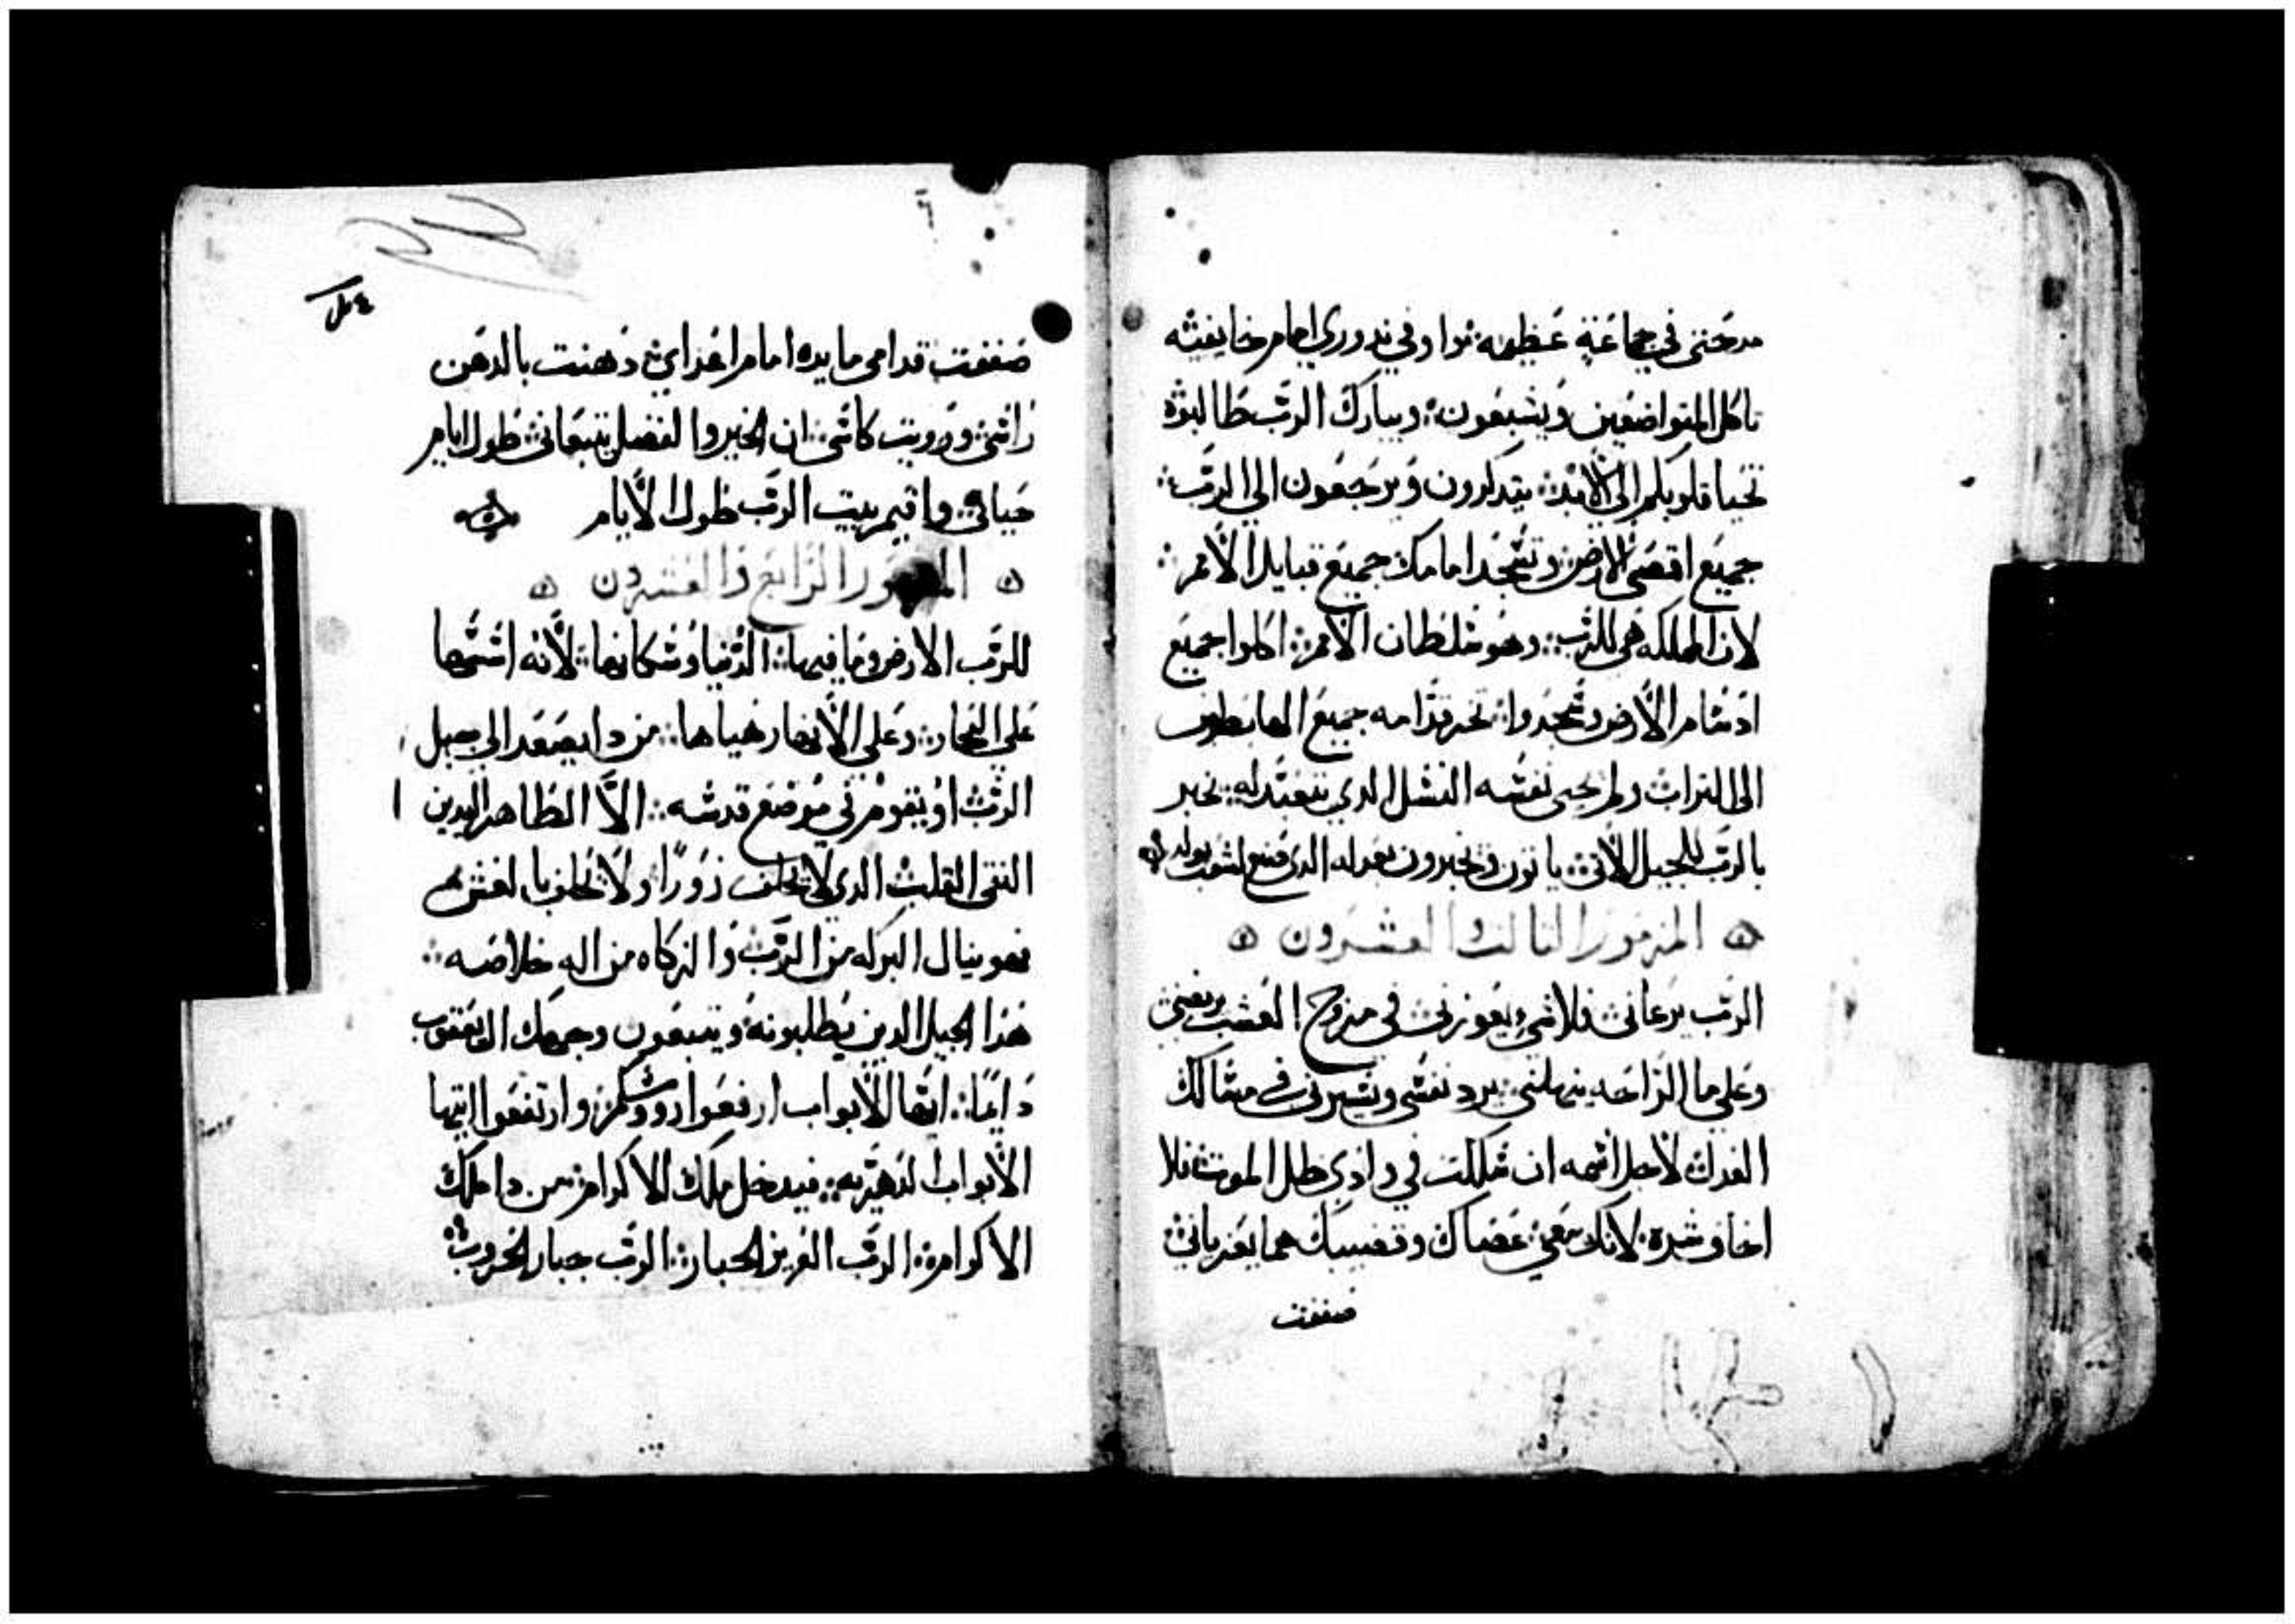 مدحتي في جماعة عظيمه نوا وفي ندوري امام خايفيه
تاكل المتواضعين ويشبعون وببارك الرب طالبوه
تحيا قلوبكم الى الابد يتدكرون ويرجعون الى الرب
جميع اقصى الارض وتسجد امامك جميع قبايل الامم
لان المملكه هي للرب وهو سلطان الامم اكلوا جميع
ادسام الارض وسجدوا تخر قدامه جميع الهابطون
الى التراب ولم تحيى نفسه النسل الدي يتعبد له يخبر
بالرب للجيل الاتي ياتون ويخبرون بعدله الدي صنع لشعب يولد
المزمور التالت والعشرون
الرب يرعاني فلا شي يعوزني في مروج العشب يربضني
وعلى ما الراحه ينهلني يرد نفسي ويسيرني في مسالك
العدل لاجل اسمه ان سلكت في وادي ظل الموت فلا
اخاف شرة لانك معي عصاك وقضيبك هما يعزياني
صففت
صففت قدامي مايده امام اعداي دهنت بالدهن
راسي ورويت كاسي ان الخير والفضل يتبعاني طول ايام
حياتي واقيم ببيت الرب طول الايام
المزمور الرابع والعشرون
للرب الارض وما فيها الدنيا وسكانها لانه اسسها
على البحار وعلى الانهار هياها من دا يصعد الى جبل
الرب او يقوم في موضع قدسه الا الطاهر اليدين
النقي القلب الدي لا يحلف زورا ولا يحلف بالغش
فهو ينال البركه من الرب والزكاه من اله خلاصه
هدا الجيل الدين يطلبونه ويتبعون وجهك اله يعقوب
دايما ايها الابواب ارفعوا رووسكم وارتفعوا ايتها
الابواب الدهريه فيدخل ملك الاكرام من دا ملك
الاكرام الرب العزيز الجبار الرب جبار الحروب